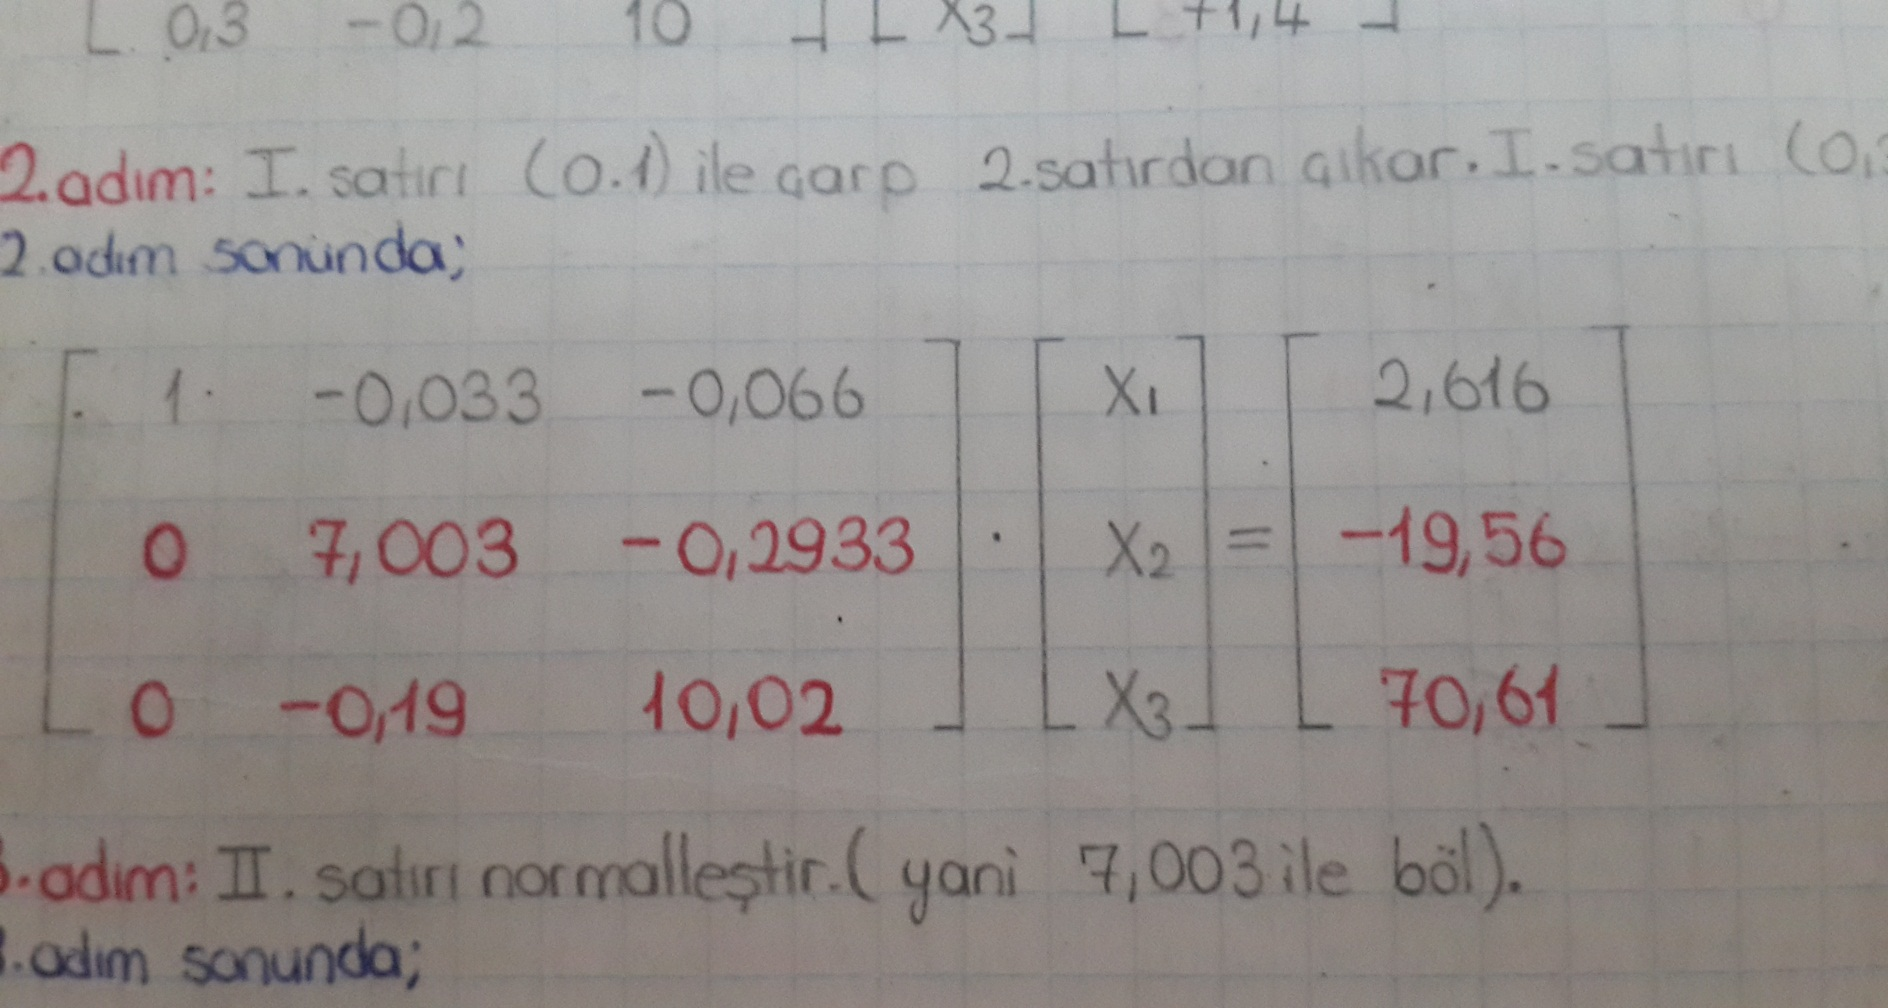 [ 0,3 -0,2 10 ] [ X3 ] [ 71,4 ]
2.adım: I. satırı (0.1) ile çarp 2.satırdan çıkar. I.satırı (0,3
2.adım sonunda;
[ 1 -0,033 -0,066 ] [ X1 ] [ 2,616 ]
[ 0 7,003 -0,2933 ] . [ X2 ] = [ -19,56 ]
[ 0 -0,19 10,02 ] [ X3 ] [ 70,61 ]
3.adım: II. satırı normalleştir. (yani 7,003 ile böl).
3.adım sonunda;